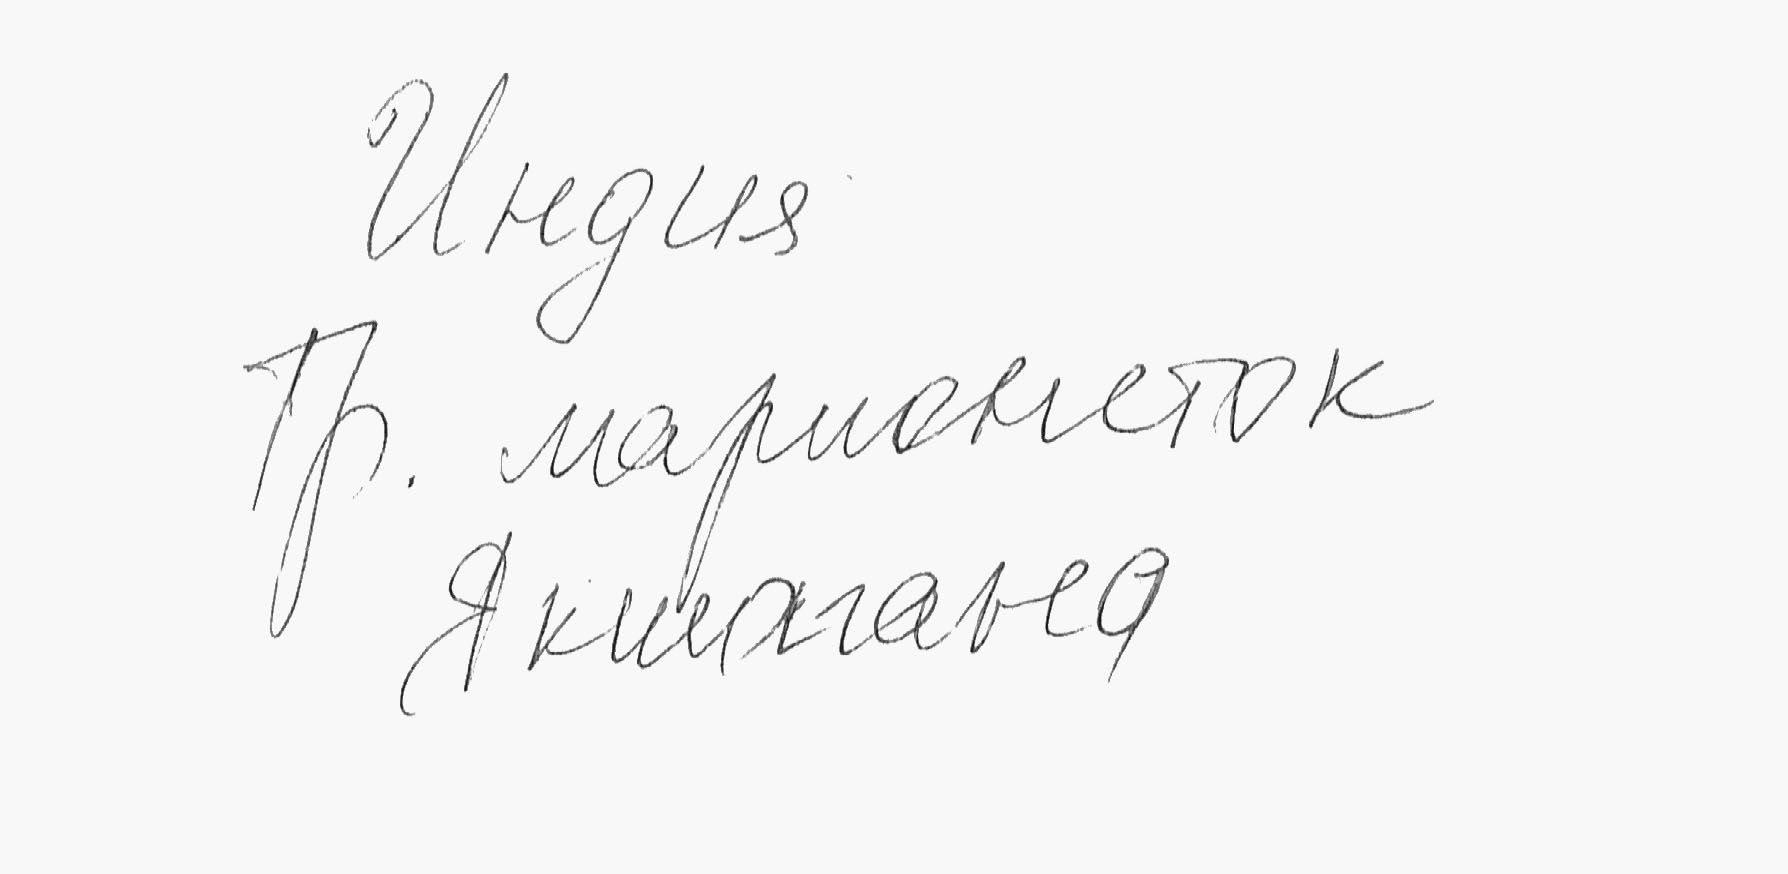 Индия
Тр. марионеток
Якшагана